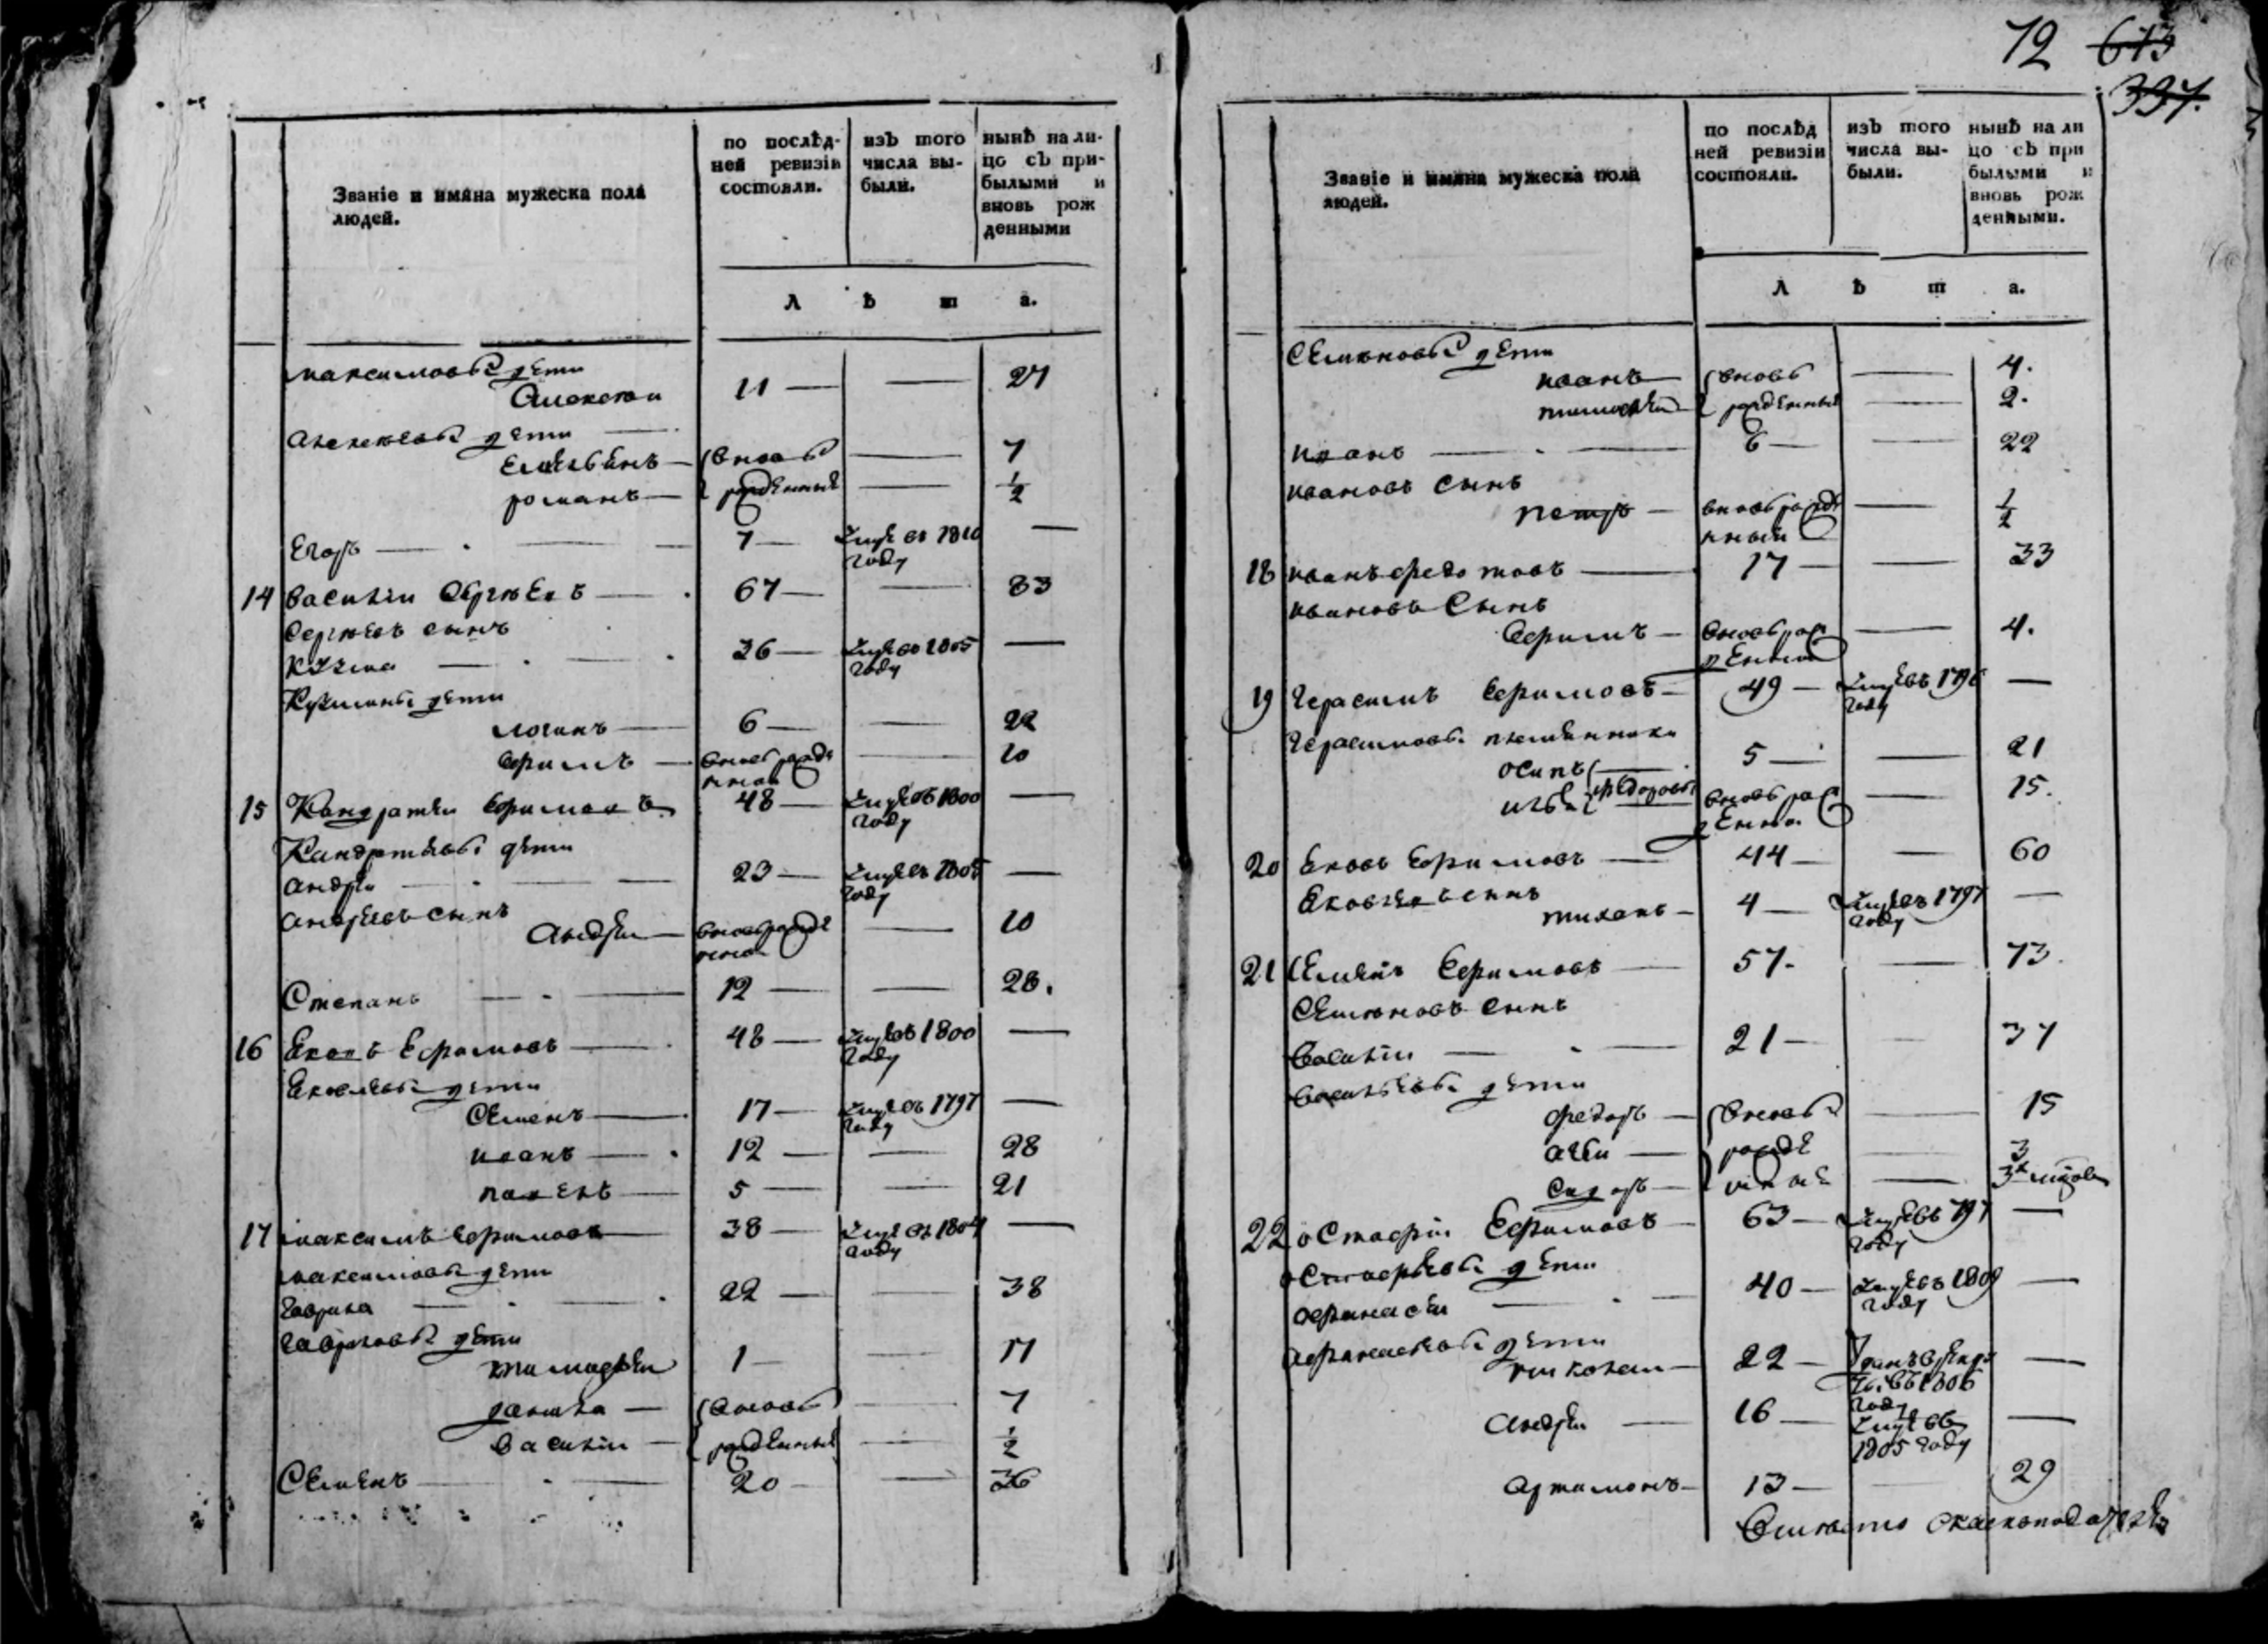 Званіе и имяна мужеска пола
людей.
по послѣд-
ней ревизіи
состояли.
изъ того
числа вы-
были.
нынѣ на ли-
цо съ при-
былыми и
вновь рож
денными
Л ѣ т а.
максимовы дети
Алексеи 11 — — 27
Алексеевы дети
Емельянъ — вновь — 7
романъ — рожденныя — ½
Егоръ — 7 — умре въ 1810 —
году
14 Василии Сергѣевъ — 67 — — 83
Сергѣевъ сынъ
Кузма — 26 — умре въ 1805 —
году
Кузмины дети
логинъ — 6 — — 22
Ефимъ — вновь рожде — 10
нной
15 Кандратеи Ефимовъ 48 — умре въ 1800 —
году
Кандратьевы дети
Андреи — 23 — умре въ 1805 —
году
Андреевъ сынъ
Андреи — вновь рожде — 10
нной
Степанъ — 12 — — 28.
16 Яковъ Ефимовъ — 48 — умре въ 1800 —
году
Яковлевы дети
Семенъ — 17 — умре въ 1797 —
году
иванъ — 12 — — 28
павелъ — 5 — — 21
17 максимъ Ефимовъ 38 — умре въ 1804 —
году
максимовы дети
Гаврила — 22 — — 38
Гавриловы дети
тимофеи 1 — — 17
данила — вновь — 7
василии — рожденныя — ½
Семенъ — 20 — — 36
12 613
397.
Званіе и имяна мужеска пола
людей.
по послѣд
ней ревизіи
состояли.
изъ того
числа вы-
были.
нынѣ на ли
цо съ при
былыми и
вновь рож
денными.
Л ѣ т а.
Семеновы дети
иванъ — вновь — 4.
тимофеи — рожденныя — 2.
иванъ — 6 — — 22
ивановъ сынъ
петръ — вновь рожде — ½
нный
18 иванъ федотовъ — 17 — — 33
ивановъ сынъ
Ефимъ — вновь рож — 4.
денной
19 Герасимъ Ефимовъ — 49 — умре въ 1796 —
году
Герасимовы племянники
осипъ 5 — — 21
илья федоровы вновь рож — 15.
денной
20 Яковъ Ефимовъ — 44 — — 60
Яковлевъ сынъ
тихонъ — 4 — умре въ 1797 —
году
21 Семенъ Ефимовъ — 57. — 73.
Семеновъ сынъ
Василии — 21 — — 37
Васильевы дети
федоръ — вновь — 15
рожде 3
Сидоръ — нныя — 3х мцовъ
22 остафіи Ефимовъ — 63 — умре въ 797 —
году
остафьевы дети
афанасеи — 40 — умре въ 1809 —
году
афанасьевы дети
николаи — 22 — —
1806
году
Андреи — 16 — умре въ —
1805 году
Артамонъ — 13 — 29